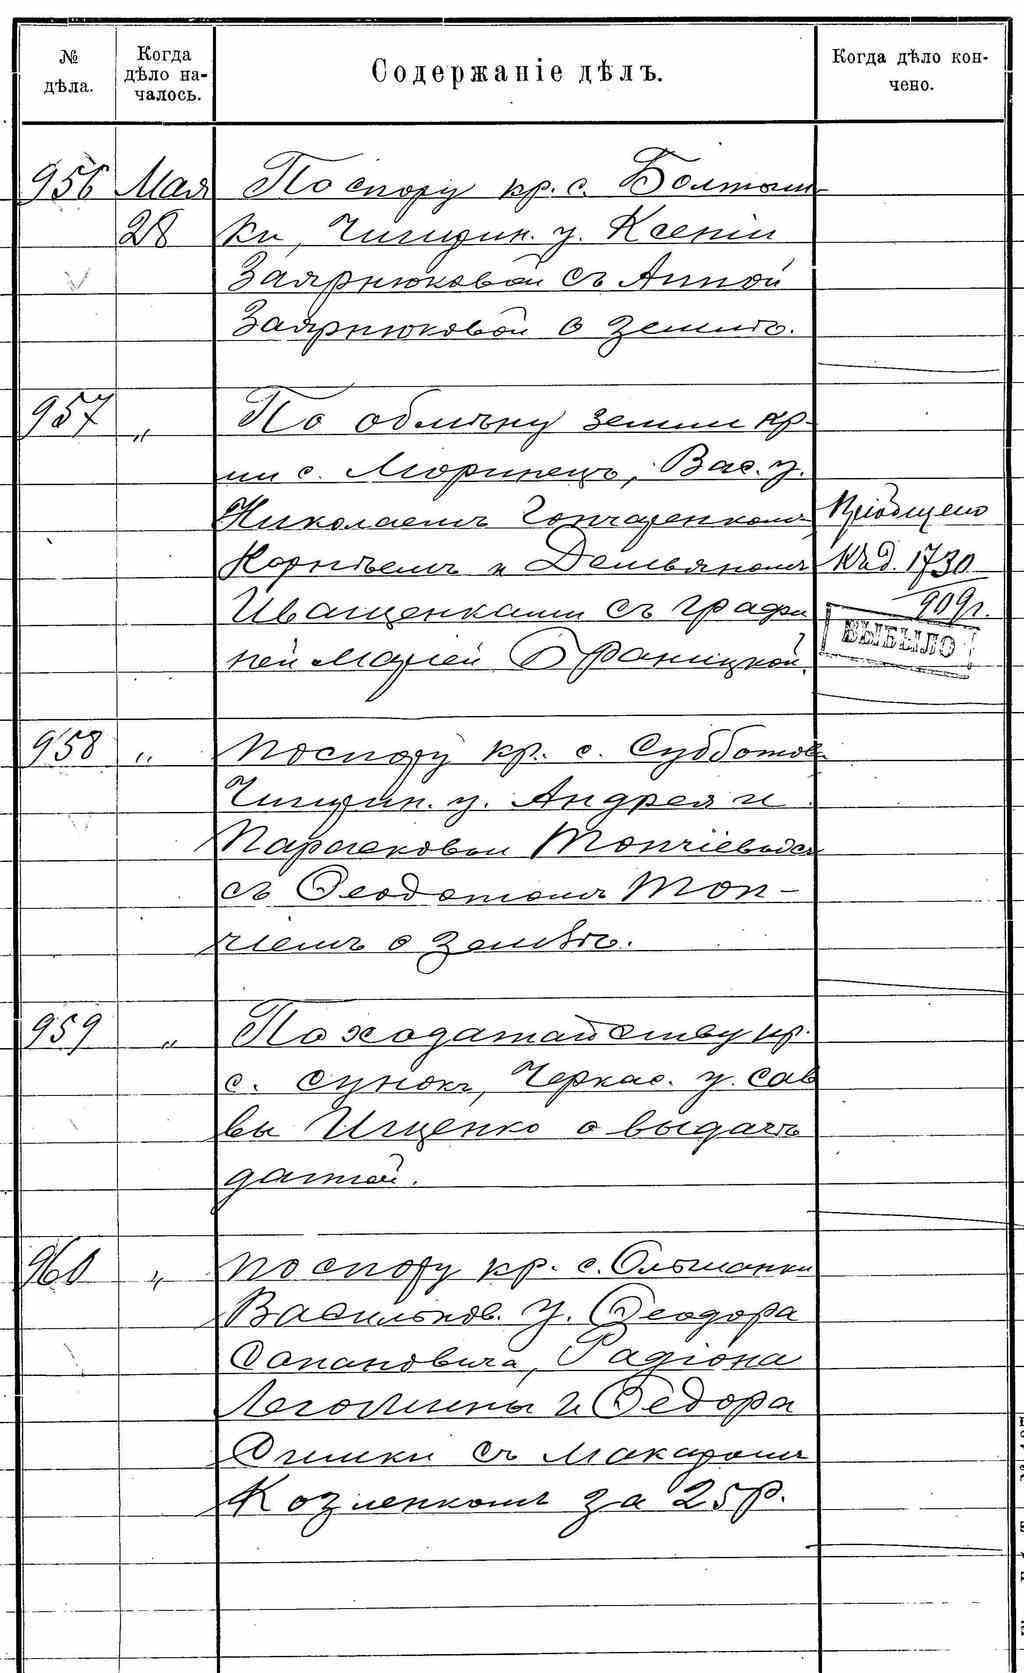 № дѣла.
Когда дѣло на-
чалось.
Содержаніе дѣлъ.
Когда дѣло кон-
чено.
956 Мая По спору кр. с. Болтыш-
28 ки, Чигирин. у. Ксеніи
Заярнюковой съ Анной
Заярнюковой о землѣ.
957 „ По обмѣну земли кр-
ми с. Моринецъ, Вас. у.
Николаемъ Гончаренкомъ Пріобщено
Корнѣемъ и Демьяномъ къ д. 1730
Иващенками съ графи 909 г.
ней Маріей Браницкой. ВЫБЫЛО
958 „ По спору кр. с. Субботова
Чигирин. у. Андрея и
Парасковьи Топчіевыхъ
съ Феодотомъ Топ-
чіемъ о землѣ.
959 „ По ходатайству кр.
с. Сунокъ, Черкас. у. Сав
вы Ищенко о выдачѣ
данной.
960 „ По спору кр. с. Ольшанки
Васильков. у. Феодора
Сапановича, Радіона
Легомины и Федора
Симки съ Макаромъ
Козленкомъ за 25 р.